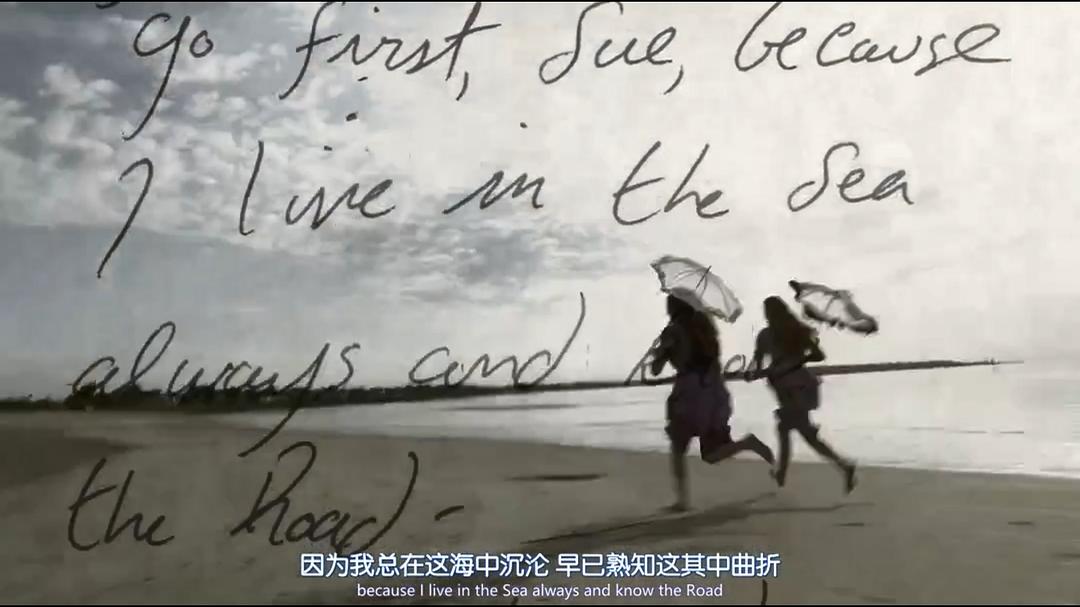 go first, Sue, because
I live in the Sea
always and know
the Road -
因为我总在这海中沉沦 早已熟知这其中曲折
because I live in the Sea always and know the Road